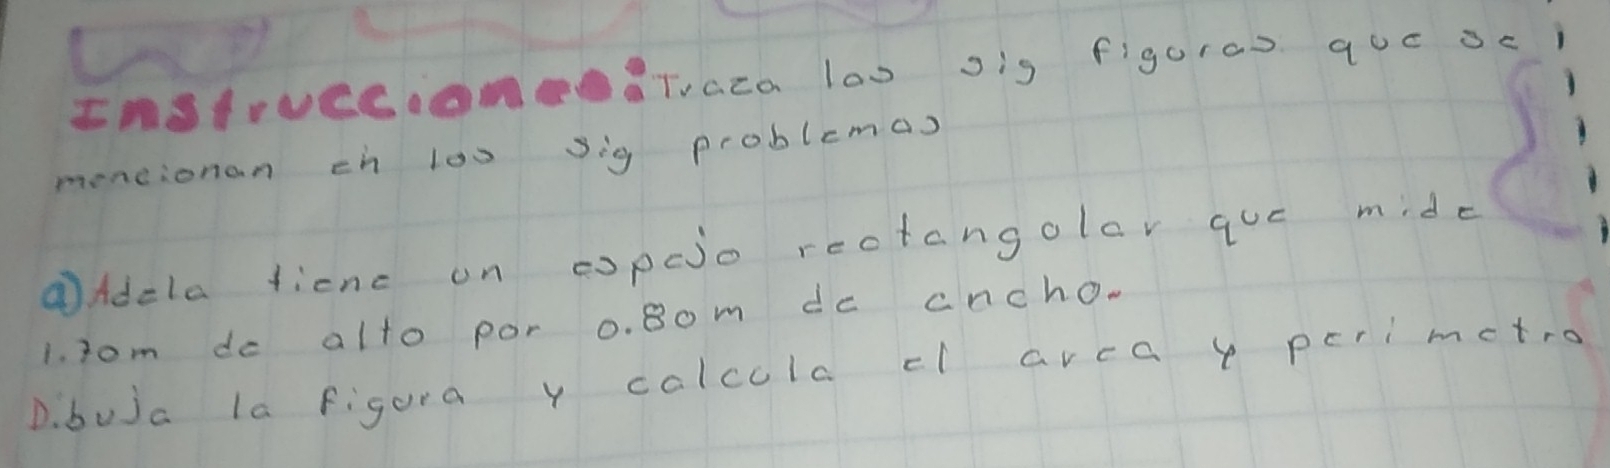 Instrucciones: Traza las sig figuras que se
mencionan en los sig problemas
a) Adela tiene un espejo rectangolar que mide
1.70m de alto por 0.80m de ancho.
Dibuja la figura y calcula el area y perimetro